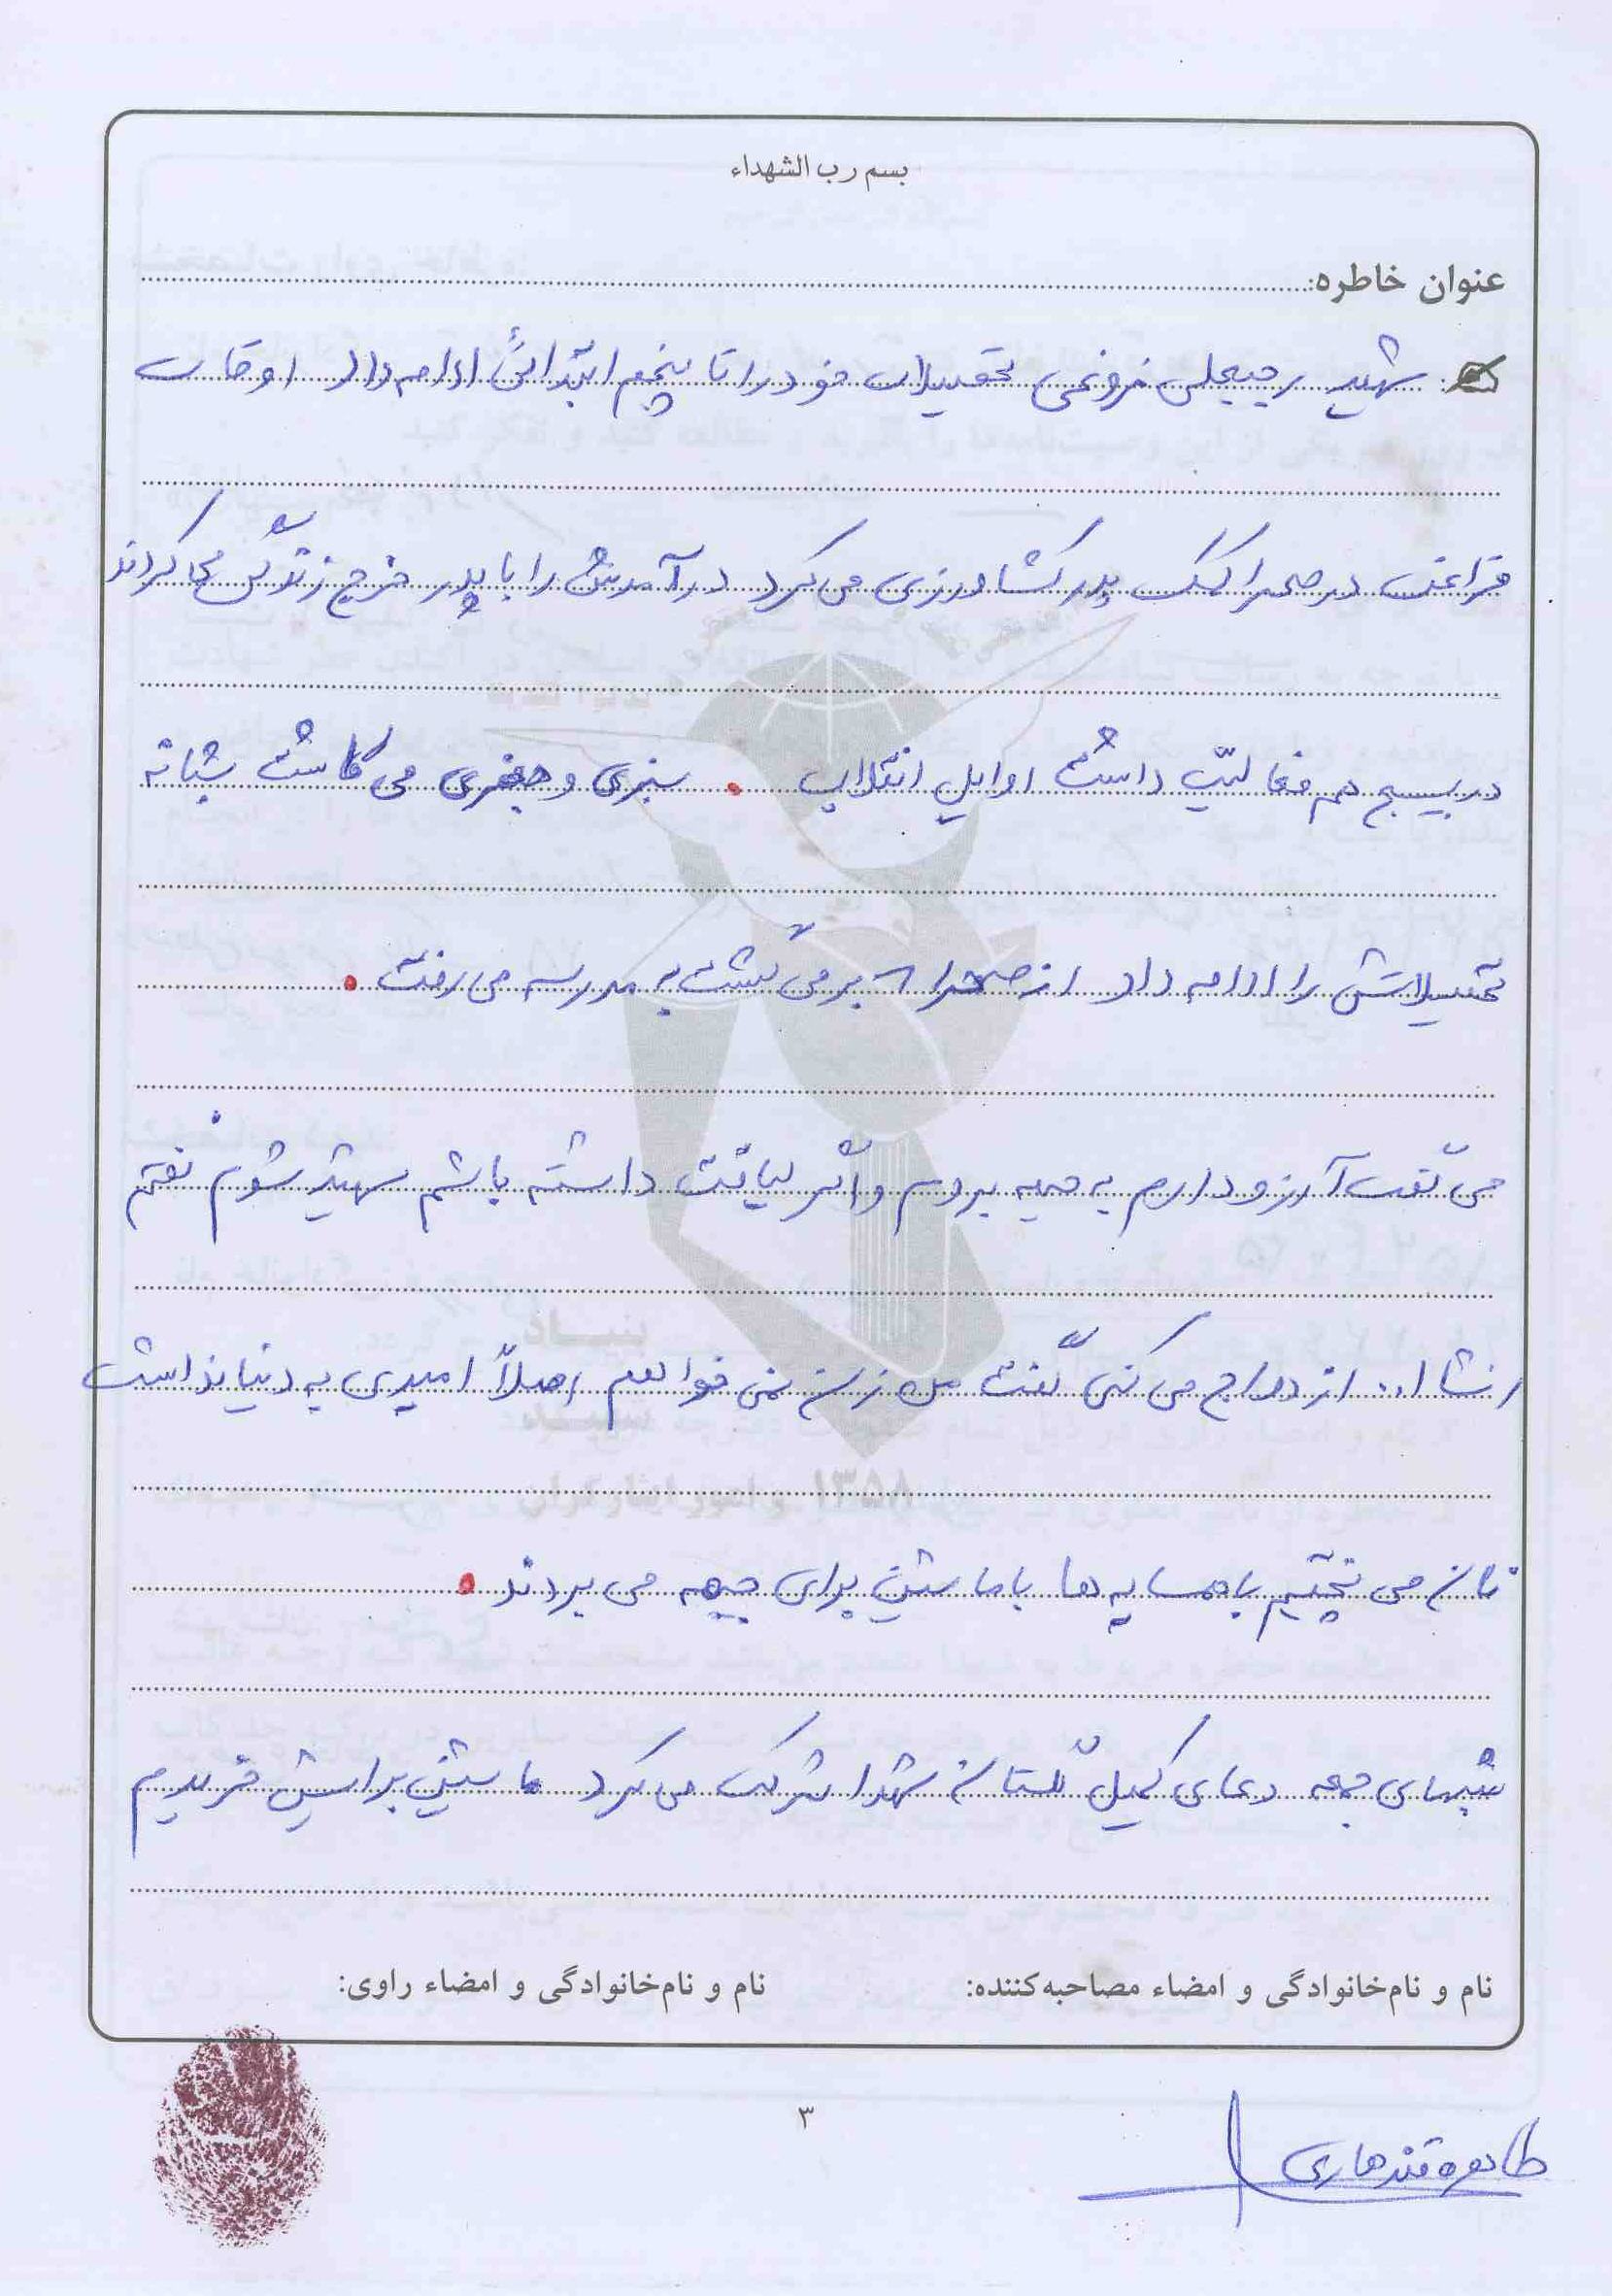 بسم رب الشهداء
عنوان خاطره:
شهید رجبعلی فروغی تحصیلات خود را تا پنجم ابتدائی ادامه داد اوقات
فراغت در صحرا کمک پدر کشاورزی می کرد درآمدش را با پدر خرج زندگی می کردند
در بسیج هم فعالیت داشت اوایل انقلاب . سبزی و جعفری می کاشت شبانه
تحصیلاتش را ادامه داد از صحرا که برمی گشت به مدرسه می رفت .
می گفت آرزو دارم به جبهه بروم و اگر لیاقت داشته باشم شهید شوم گفتم
انشاا.. ازدواج می کنی گفت من زن نمی خواهم اصلاً امیدی به دنیا نداشت
نان می پختیم با همسایه ها با ماشین برای جبهه می بردند .
شبهای جمعه دعای کمیل گلستان شهدا شرکت می کرد ماشین برایش خریدیم
بنیاد
شهید
۱۳۵۸ و امور ایثارگران
نام و نام‌خانوادگی و امضاء مصاحبه‌کننده: نام و نام‌خانوادگی و امضاء راوی:
۳
طاهره قندهاری